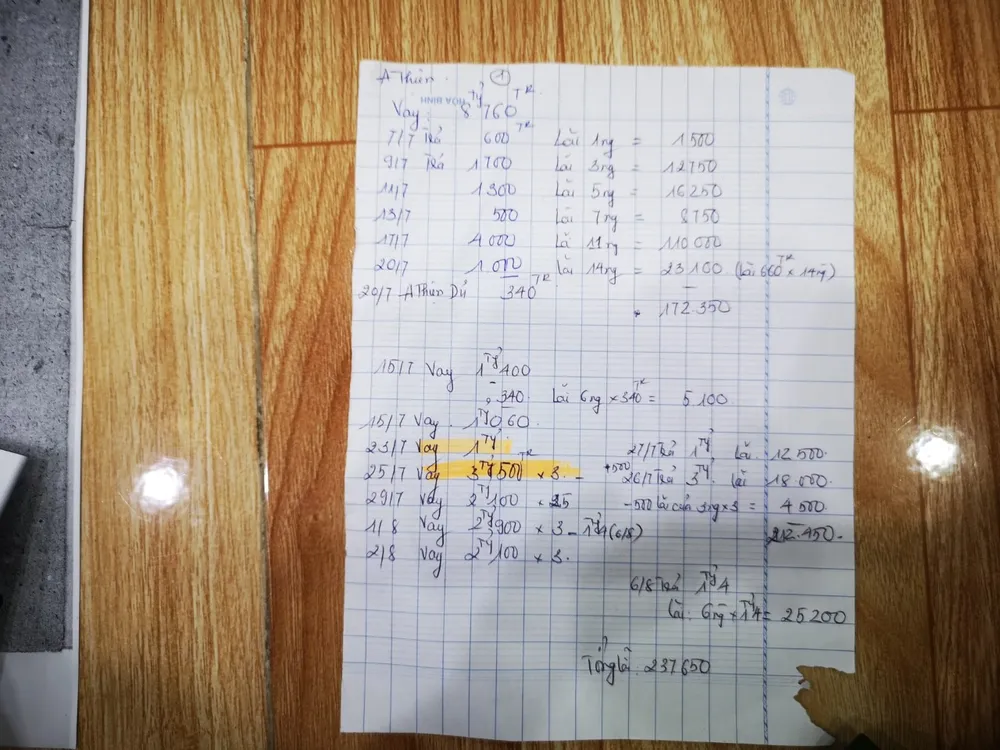 A Thiện. 1
HÒA BÌNH
Vay: 8 Tỷ 760 TR
7/7 Trả 600 TR Lãi 1ng = 1500
9/7 Trả 1700 Lãi 3ng = 12750
11/7 1300 Lãi 5ng = 16250
13/7 500 Lãi 7ng = 8750
17/7 4.000 Lãi 11ng = 110.000
20/7 1.000 Lãi 14ng = 23100 (Lãi 660 TR × 14ng)
20/7 A Thiện Dư 340 TR
172.350
15/7 Vay 1 Tỷ 400
- 340 Lãi 6ng × 340 TR = 5.100
15/7 Vay 1 Tỷ 060.
23/7 Vay 1 Tỷ 27/7 Trả 1 Tỷ Lãi 12.500
25/7 Vay 3 Tỷ 500 TR × 3. - +500 26/7 Trả 3 Tỷ. Lãi 18.000.
29/7 Vay 2 Tỷ 100 × 25 -500 lãi của 3ng × 3 = 4500
1/8 Vay 2 Tỷ 900 × 3 - 1 Tỷ 4 (6/8) 212.450.
2/8 Vay 2 Tỷ 100 × 3.
6/8 Trả 1 Tỷ 4
Lãi: 6ng × 1 Tỷ 4 = 25200
Tổng lãi: 237650